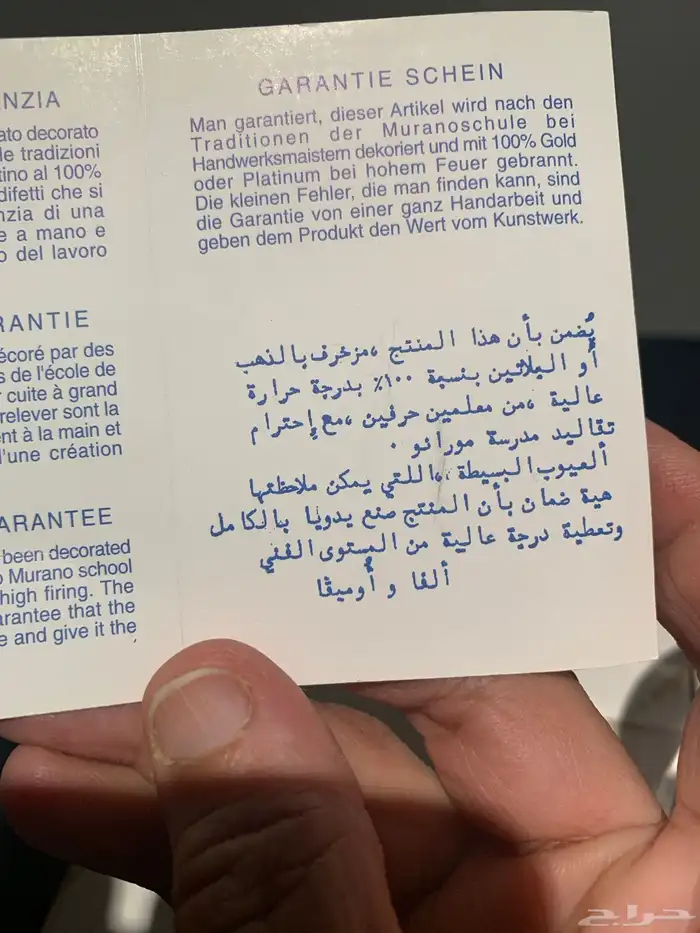 NZIA
ato decorato
le tradizioni
tino al 100%
difetti che si
nzia di una
e a mano e
o del lavoro
RANTIE
écoré par des
s de l'école de
r cuite à grand
relever sont la
nt à la main et
l'une création
ARANTEE
been decorated
o Murano school
high firing. The
arantee that the
e and give it the
GARANTIE SCHEIN
Man garantiert, dieser Artikel wird nach den
Traditionen der Muranoschule bei
Handwerksmaistern dekoriert und mit 100% Gold
oder Platinum bei hohem Feuer gebrannt.
Die kleinen Fehler, die man finden kann, sind
die Garantie von einer ganz Handarbeit und
geben dem Produkt den Wert vom Kunstwerk.
يُضمن بأن هذا المنتج ،مزخرف بالذهب
أو البلاتين بنسبة ١٠٠٪ بدرجة حرارة
عالية ،من معلمين حرفين ،مع إحترام
تقاليد مدرسة مورانو .
العيوب البسيطة ،اللتي يمكن ملاحظتها
هية ضمان بأن المنتج صنع يدويا بالكامل
وتعطية درجة عالية من المستوى الفني
ألفا و أوميڤا
حراج